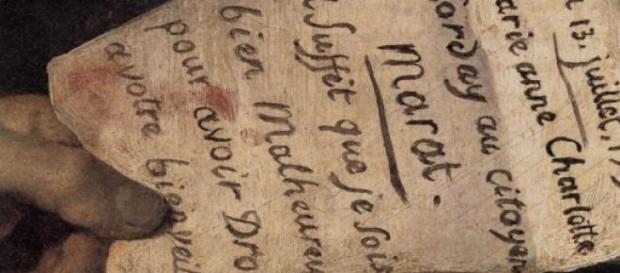 13. juillet, 179
arie anne Charlotte
orday au citoyen
marat.
Suffit que je sois
bien Malheureu
pour avoir Dro
avotre bienveil